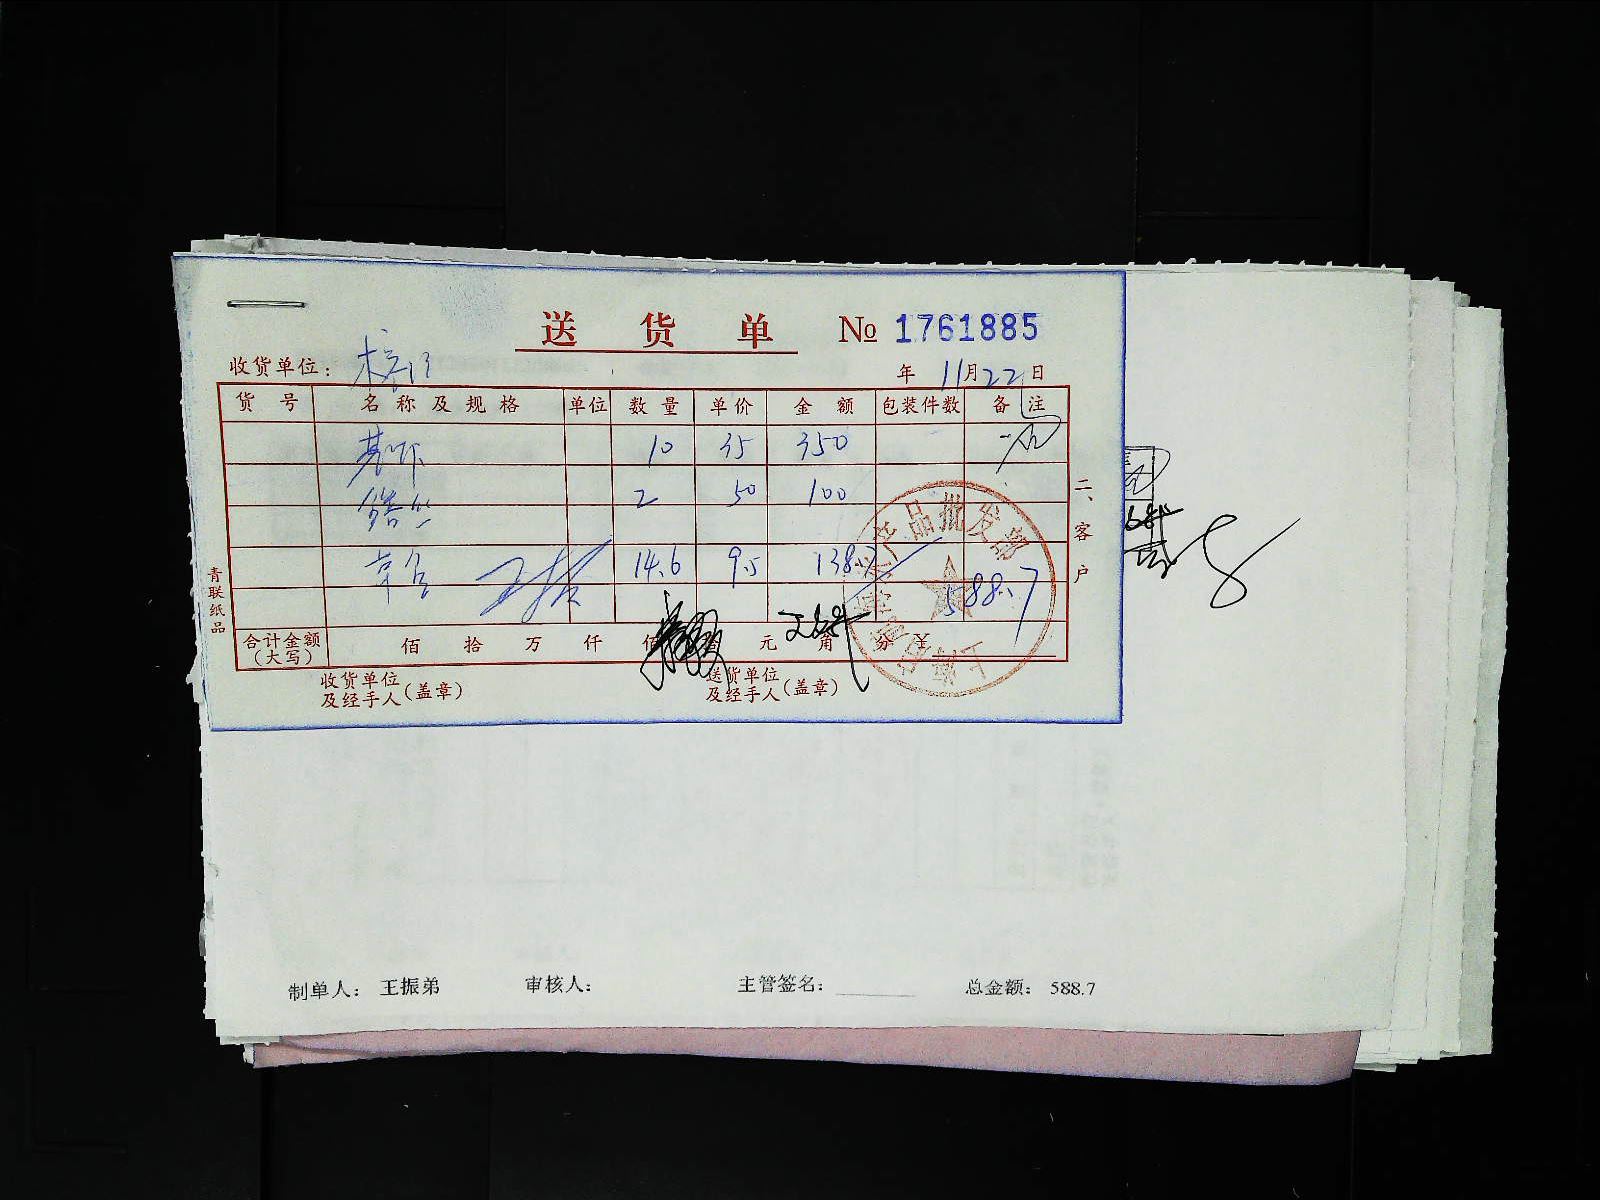 送货单 № 1761885
收货单位：
年 11月22日
货号 名称及规格 单位 数量 单价 金额 包装件数 备注
基围 10 35 350
2 50 100
14.6 9.5 138.7
588.7
合计金额（大写） 佰 拾 万 仟 佰 元 角 分 ¥
收货单位及经手人（盖章） 送货单位及经手人（盖章）
二、客户
青联纸品
产品批发部
制单人： 王振弟 审核人： 主管签名： 总金额： 588.7